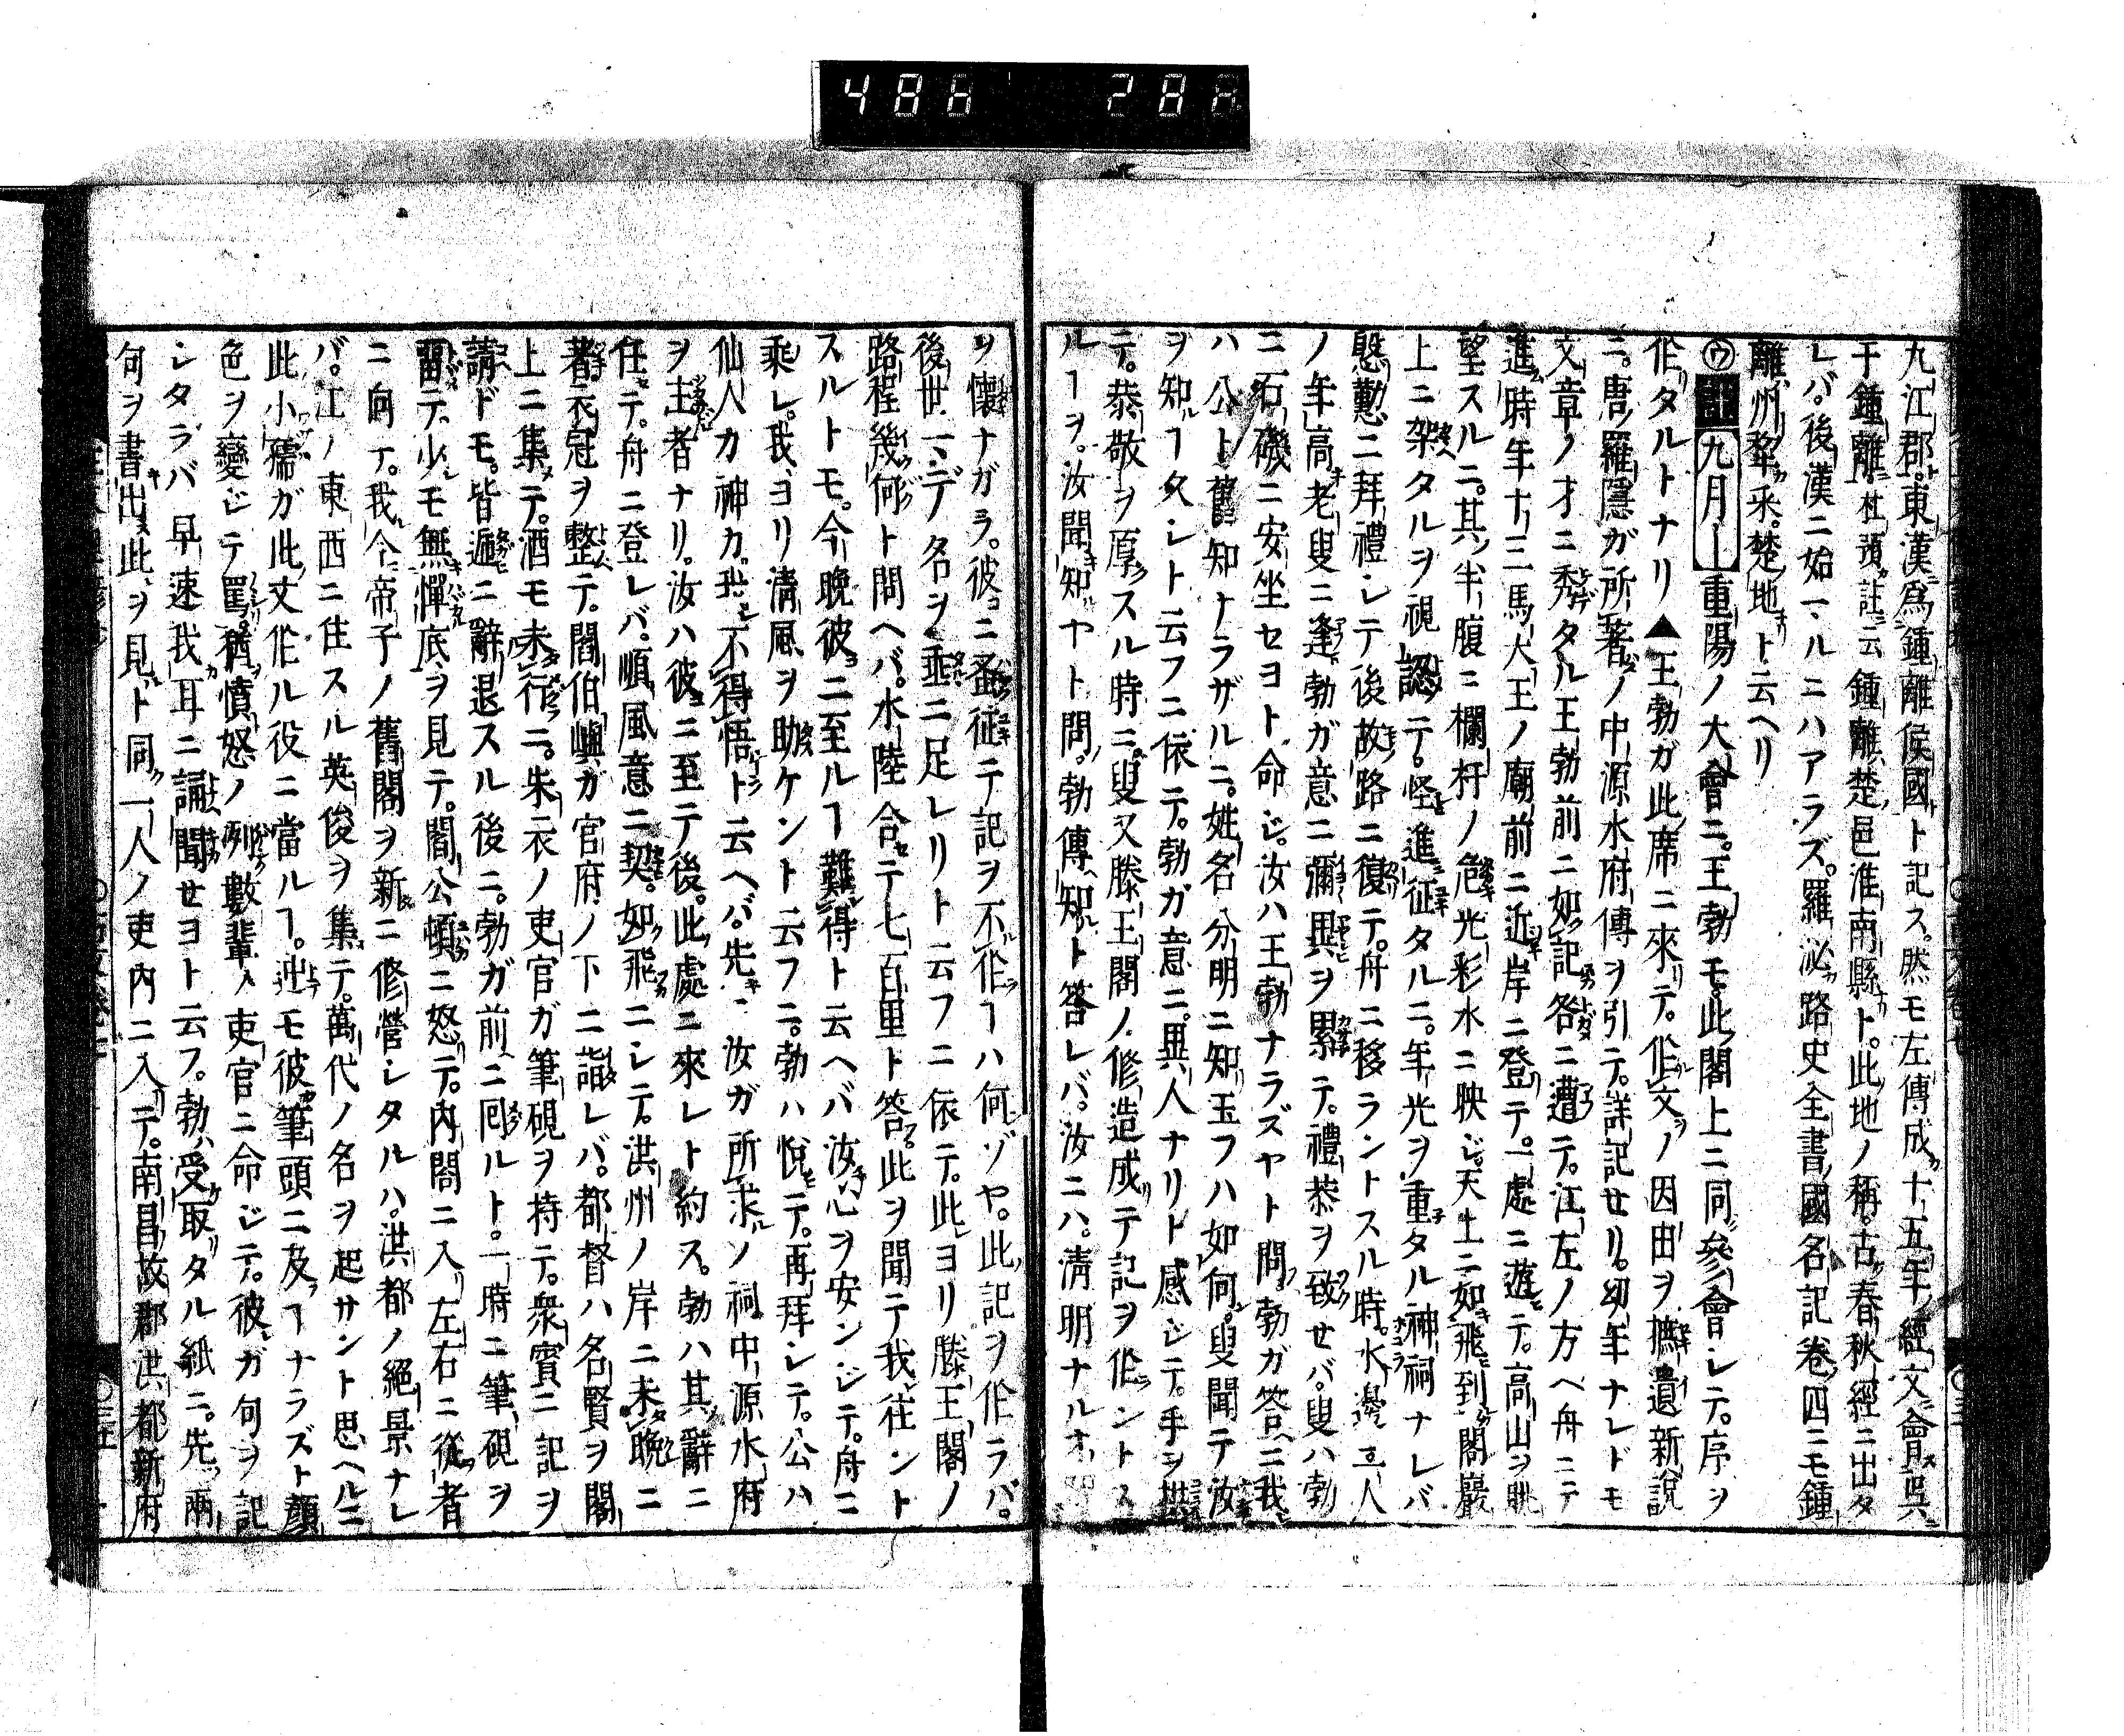 486 288
九江郡東漢爲鍾離侯國ト記ス然モ左傳成十五年經文會吳
于鍾離杜預註云鍾離楚邑淮南縣ト此地ノ稱古春秋經ニ出タ
レバ後漢ニ始マルニハアラズ羅泌路史全書國名記卷四ニモ鍾
離州黎来楚地ト云ヘリ
㋒註九月ー重陽ノ大會ニ王勃モ此閣上ニ同參會シテ序ヲ
作タルトナリ▲王勃ガ此席ニ來テ作文ノ因由ヲ摭遺新說
ニ唐羅隱ガ所著ノ中源水府傳ヲ引テ詳記セリ幼年ナレドモ
文章ノ才ニ秀タル王勃前ニ如記咎ニ遭テ江左ノ方ヘ舟ニテ
進時年十三馬大王ノ廟前ニ近岸ニ登テ一處ニ遊テ高山ヲ眺
望スルニ其半腹ニ欄杆ノ危光彩水ニ映ジ天土ニ如飛到閣巖
上ニ架タルヲ視認テ怪進征タルニ年光ヲ重タル神祠ナレバ
慇懃ニ拜禮シテ後故路ニ復テ舟ニ移ラントスル時水邊立人
ノ年高老叟ニ逢勃ガ意ニ彌異ヲ累テ禮恭ヲ致セバ叟ハ勃
ニ石磯ニ安坐セヨト命ジ汝ハ王勃ナラズヤト問勃ガ答ニ我
ハ公ト舊知ナラザルニ姓名分明ニ知玉フハ如何叟聞テ汝
ヲ知ヿ久シト云フニ依テ勃ガ意ニ異人ナリト感ジテ手ヲ拱
テ恭敬ヲ厚スル時ニ叟又滕王閣ノ修造成テ記ヲ作ントス
ルヿヲ汝聞知ヤト問勃傳知ト答レバ汝ニハ淸明ナルオ
ヲ懷ナガラ彼ニ蚤征テ記ヲ不作ヿハ何ゾヤ此記ヲ作ラバ
後世マデ名ヲ垂ニ足レリト云フニ依テ此ヨリ滕王閣ノ
路程幾何ト問ヘバ水陸合テ七百里ト答此ヲ聞テ我往ント
スルトモ今晩彼ニ至ルヿ難得ト云ヘバ汝心ヲ安ンジテ舟ニ
乘レ我ヨリ淸風ヲ助ケント云フニ勃ハ悅テ再拜シテ公ハ
仙人カ神カ我不得悟ト云ヘバ先ニ汝ガ所求ノ祠中源水府
ヲ主者ナリ汝ハ彼ニ至テ後此處ニ來レト約ス勃ハ其辭ニ
任テ舟ニ登レバ順風意ニ契如飛ニシテ洪州ノ岸ニ未晩ニ
著衣冠ヲ整テ閻伯嶼ガ官府ノ下ニ詣レバ都督ハ名賢ヲ閣
上ニ集テ酒モ未行ニ朱衣ノ吏官ガ筆硯ヲ持テ衆賓ニ記ヲ
請ドモ皆遞ニ辭退スル後ニ勃ガ前ニ囘ルト一時ニ筆硯ヲ
留テ少モ無憚底ヲ見テ閻公頓ニ怒テ内閤ニ入左右ニ從者
ニ向テ我今帝子ノ舊閣ヲ新ニ修營シタルハ洪都ノ絕景ナレ
バ江ノ東西ニ住スル英俊ヲ集テ萬代ノ名ヲ起サント思ヘルニ
此小孺ガ此文作ル役ニ當ルヿ迚モ彼筆頭ニ及ヿナラズト顏
色ヲ變ジテ罵猶憤怒ノ列數輩ノ吏官ニ命ジテ彼ガ句ヲ記
シタラバ早速我耳ニ誦聞セヨト云フ勃ハ受取タル紙ニ先兩
句ヲ書出此ヲ見ト同一人ノ吏内ニ入テ南昌故郡洪都新府